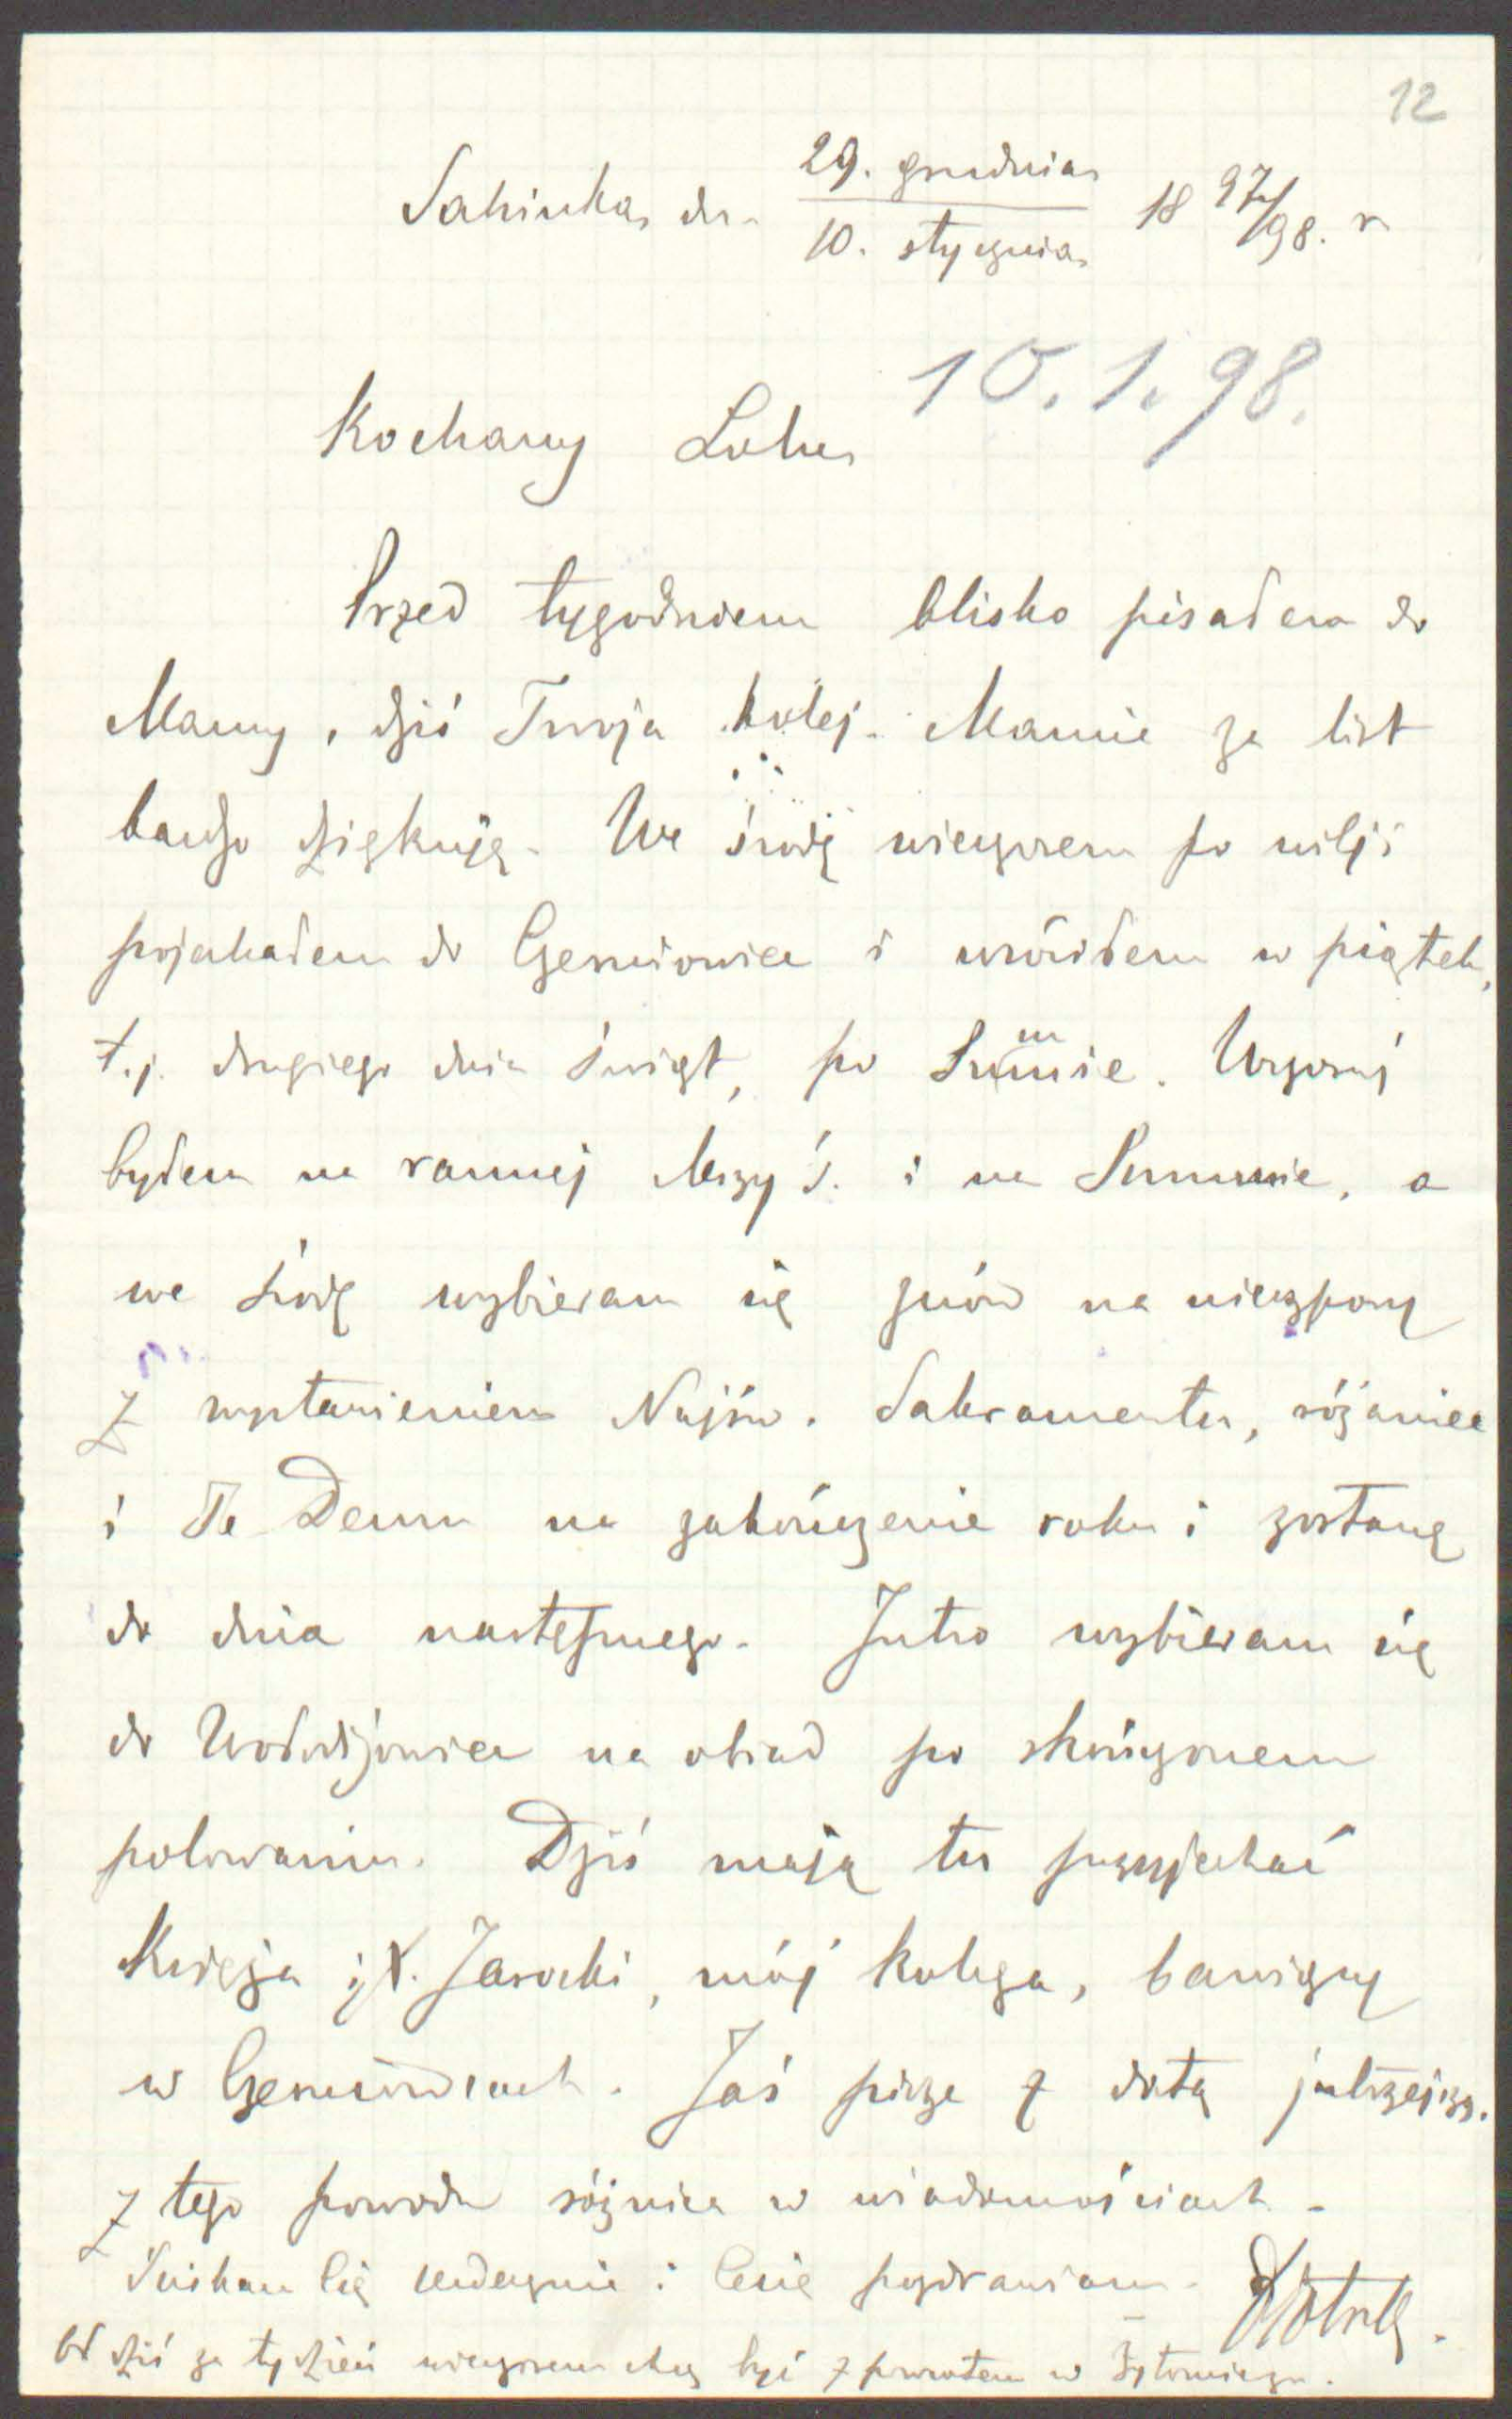 12
Sahinka, dn. 29. grudnia
10. stycznia 18 97/98. r
10.1.98.
Kochany Lolu
Przed tygodniem blisko pisałem do
Mamy, dziś Twoja kolej. Mamie za list
bardzo dziękuję. We środę wieczorem po wilji
pojechałem do Czerniowiec i wróciłem w piątek,
t.j. drugiego dnia świąt, po Summie. Wczoraj
byłem na rannej Mszy ś. i na Summie, a
we środę wybieram się znów na nieszpory
z wystawieniem Najśw. Sakramentu, różaniec
i Te Deum na zakończenie roku i zostanę
do dnia następnego. Jutro wybieram się
do Wołodijowiec na obiad po skończonem
polowaniu. Dziś mają tu przyjechać
Księża i X. Jarocki, mój kolega, bawiący
w Czerniowcach. Jaś pisze z datą jutrzejszą.
z tego powodu różnica w wiadomościach.
Ściskam Cię serdecznie i Cesię pozdrawiam.
Od dziś za tydzień wieczorem chcę być z powrotem w Żytomierzu.